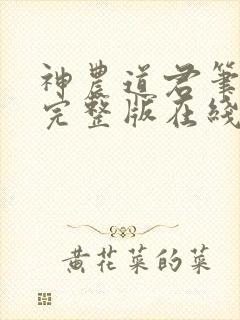 神農道君筆
完整版在綫
黄花菜的菜